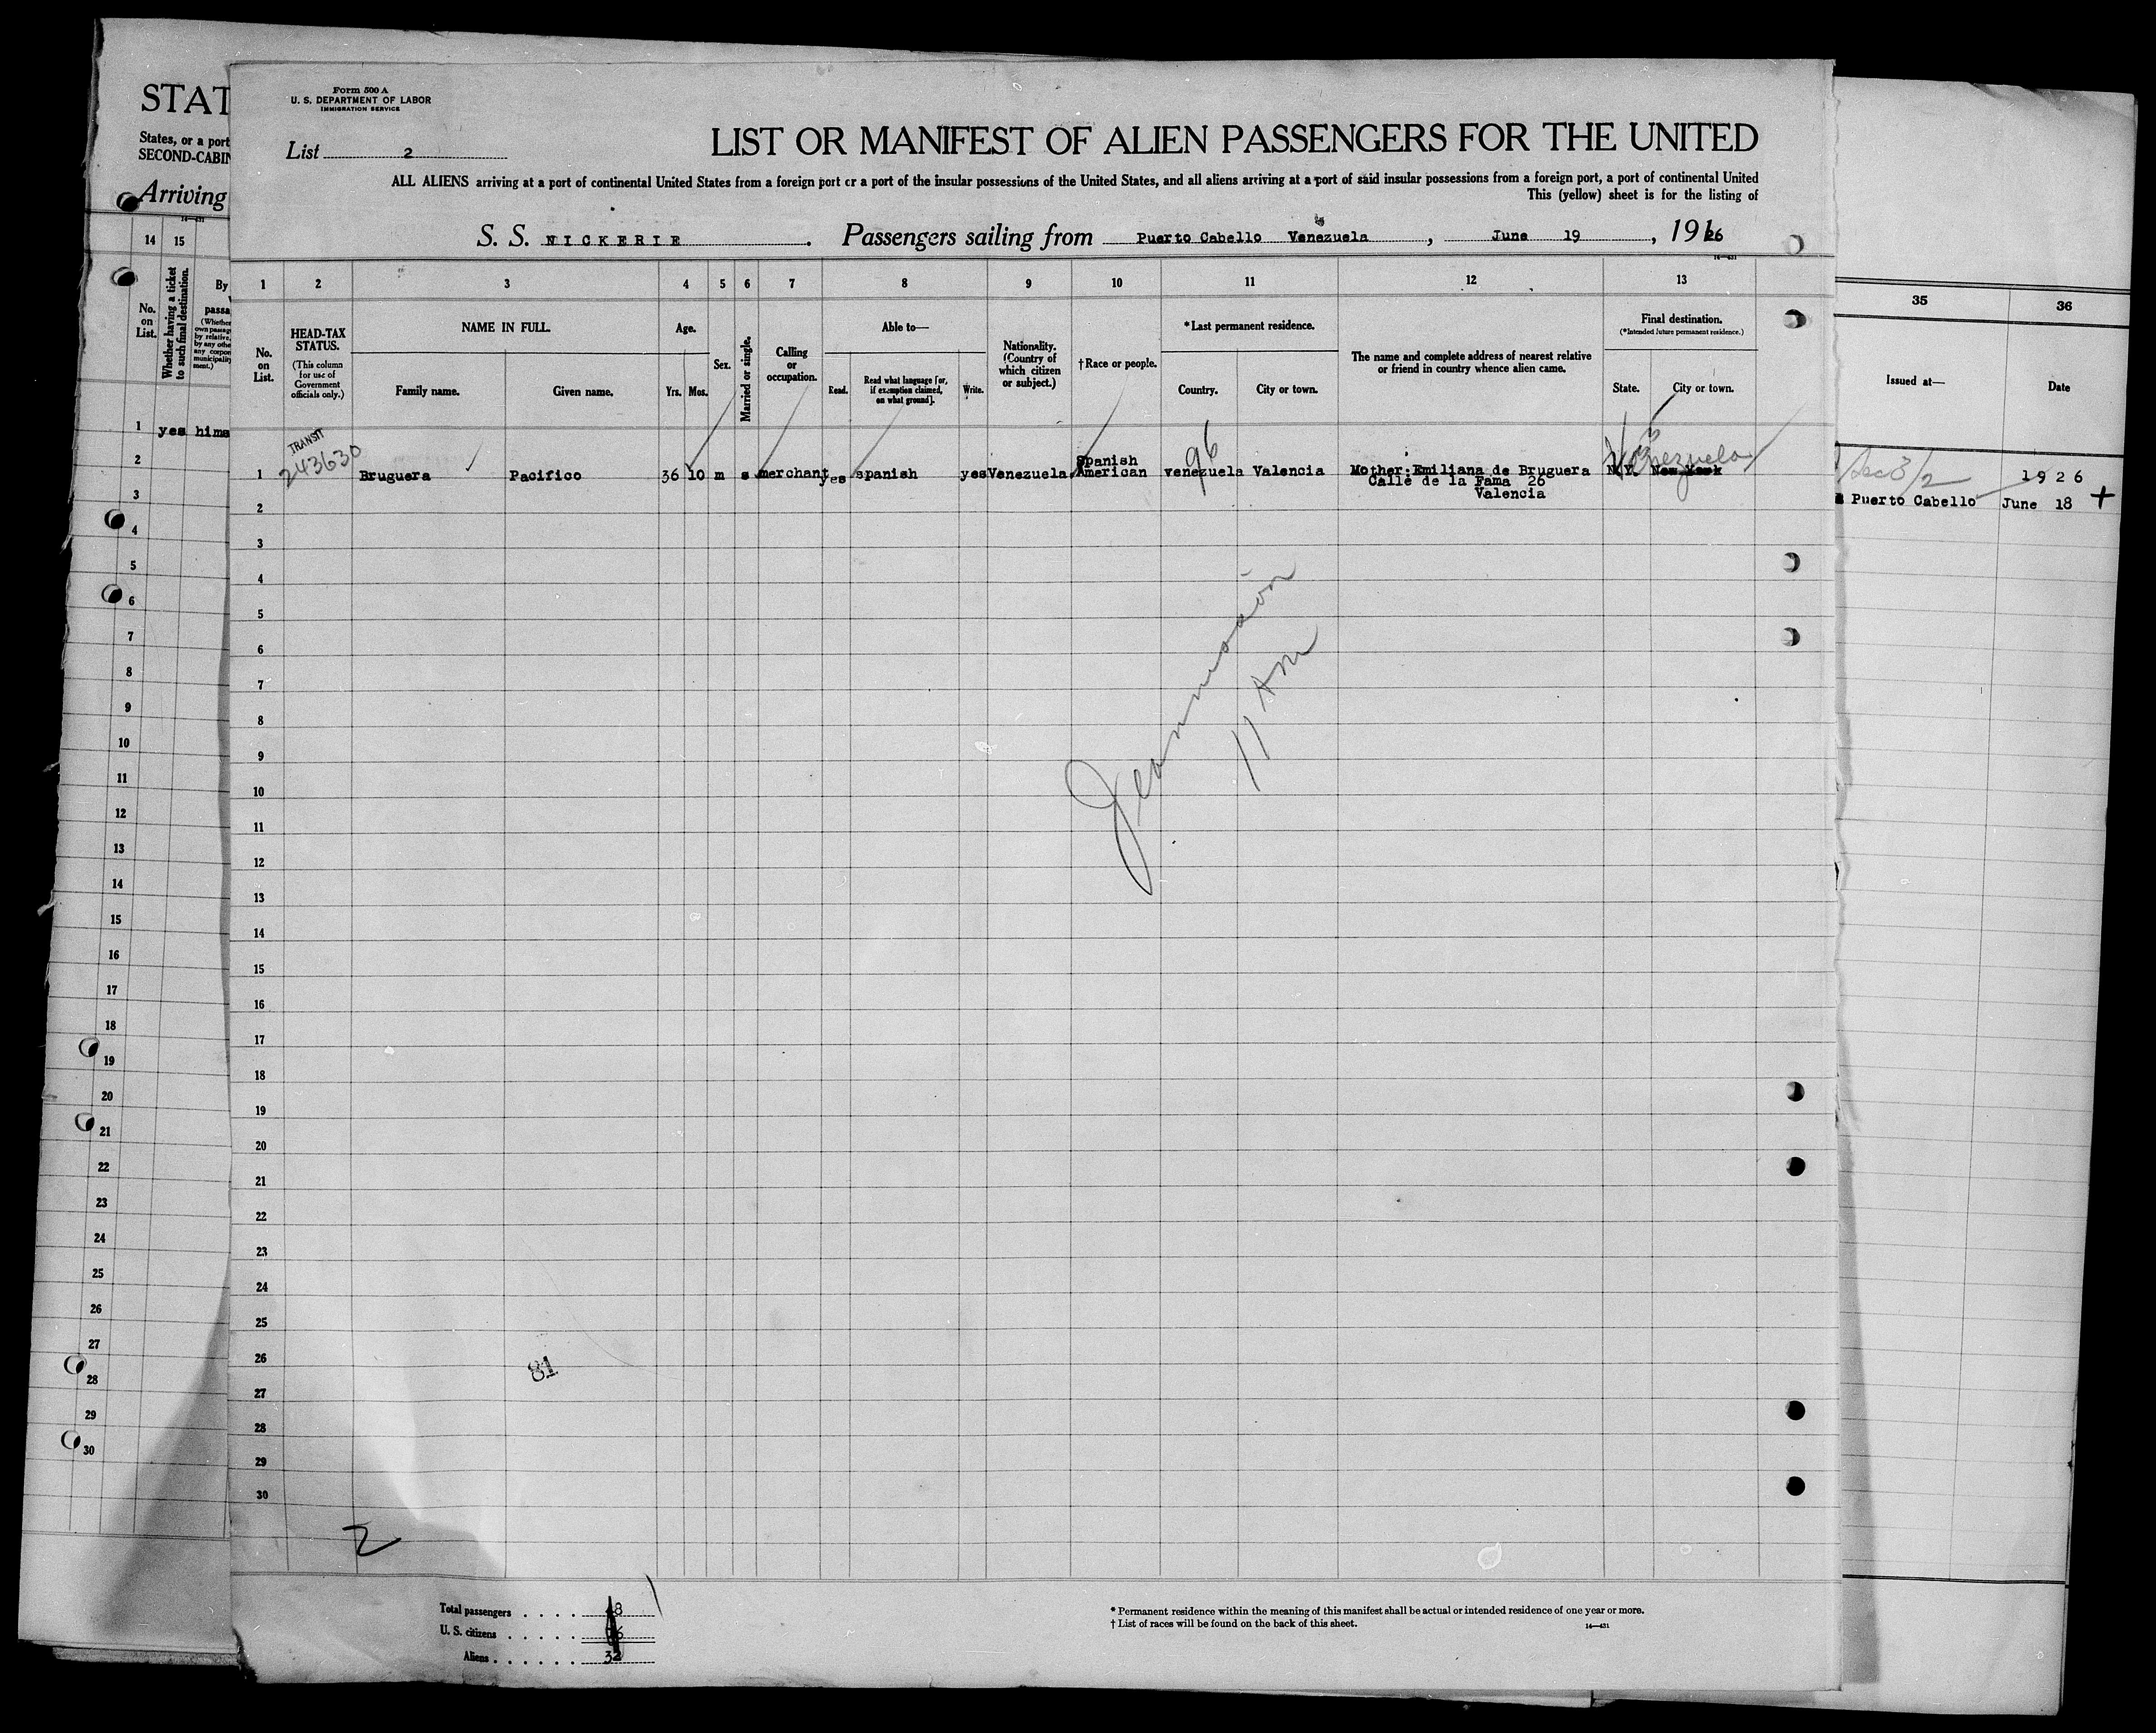 STAT
States, or a port
SECOND-CABIN
Arriving
14 15
No. on List.
Whether having a ticket to such final destination.
By
passa
(Whether
own passag
by relative,
by any othe
any corpor
municipality
ment.)
1 yes hims
2
3
4
5
6
7
8
9
10
11
12
13
14
15
16
17
18
19
20
21
22
23
24
25
26
27
28
29
30
Form 500 A
U. S. DEPARTMENT OF LABOR
IMMIGRATION SERVICE
List 2
LIST OR MANIFEST OF ALIEN PASSENGERS FOR THE UNITED
ALL ALIENS arriving at a port of continental United States from a foreign port or a port of the insular possessions of the United States, and all aliens arriving at a port of said insular possessions from a foreign port, a port of continental United
This (yellow) sheet is for the listing of
S. S. NICKERIE . Passengers sailing from Puerto Cabello Venezuela , June 19 , 1926
14—431
1 2 3 4 5 6 7 8 9 10 11 12 13
No. on List.
HEAD-TAX STATUS.
(This column for use of Government officials only.)
NAME IN FULL.
Family name. Given name.
Age.
Yrs. Mos.
Sex.
Married or single.
Calling or occupation.
Able to—
Read. Read what language [or, if exemption claimed, on what ground]. Write.
Nationality. (Country of which citizen or subject.)
†Race or people.
*Last permanent residence.
Country. City or town.
The name and complete address of nearest relative or friend in country whence alien came.
Final destination.
(*Intended future permanent residence.)
State. City or town.
TRANSIT
243630
96
Venezuela
1 Bruguera Pacifico 36 10 m s merchant yes spanish yes Venezuela Spanish American venezuela Valencia Mother: Emiliana de Bruguera N.Y. New York
Calle de la Fama 26
Valencia
2
3
4
5
6
7
8
9
10
11
12
13
14
15
16
17
18
19
20
21
22
23
24
25
26
27
28
29
30
11 AM
81
2
Total passengers . . . .
U. S. citizens . . . . .
Aliens . . . . . . 32
* Permanent residence within the meaning of this manifest shall be actual or intended residence of one year or more.
† List of races will be found on the back of this sheet.
14—431
35 36
Issued at— Date
Sec 3/2
1926
Puerto Cabello June 18 +